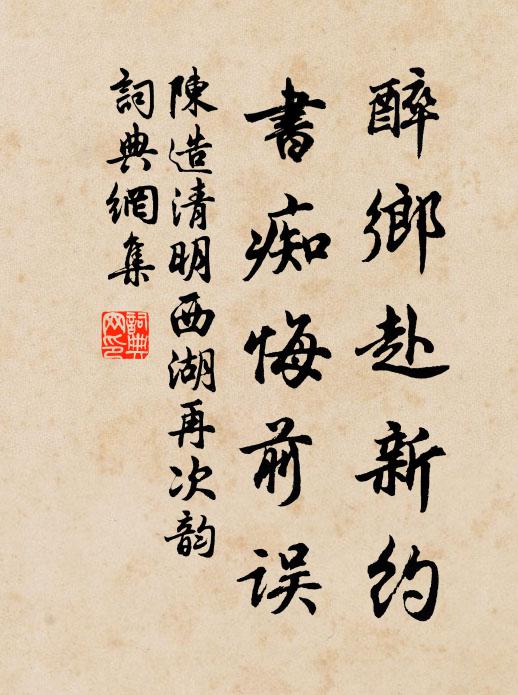 醉鄉赴新約
書痴悔前误
陳造清明西湖再次韵
詞典網集
詞典网印